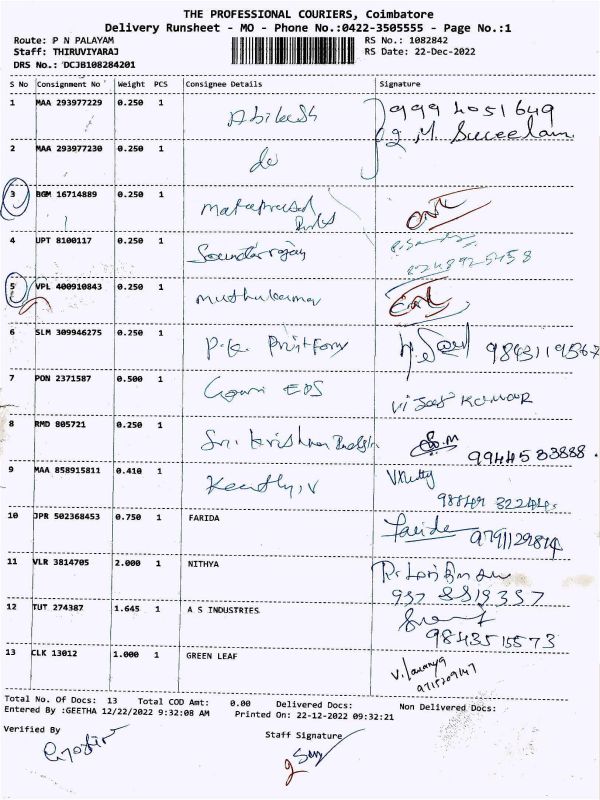 THE PROFESSIONAL COURIERS, Coimbatore
Delivery Runsheet - MO - Phone No.:0422-3505555 - Page No.:1
Route: P N PALAYAM RS No.: 1082842
Staff: THIRUVIYARAJ RS Date: 22-Dec-2022
DRS No.: DCJB108284201
S No Consignment No Weight PCS Consignee Details Signature
1 MAA 293977229 0.250 1 9994051649
2 MAA 293977230 0.250 1 do
3 BGM 16714889 0.250 1
4 UPT 8100117 0.250 1 Soundarrajan
5 VPL 400910843 0.250 1 muthukumar
6 SLM 309946275 0.250 1 P.K. 9843119567
7 PON 2371587 0.500 1 Gowri EDS Vijay Kumar
8 RMD 805721 0.250 1 Sri krishna 9944583888.
9 MAA 858915811 0.410 1
10 JPR 502368453 0.750 1 FARIDA Faride
11 VLR 3814705 2.000 1 NITHYA
12 TUT 274387 1.645 1 A S INDUSTRIES
13 CLK 13012 1.000 1 GREEN LEAF V. Lavanya
Total No. Of Docs: 13 Total COD Amt: 0.00 Delivered Docs: Non Delivered Docs:
Entered By :GEETHA 12/22/2022 9:32:08 AM Printed On: 22-12-2022 09:32:21
Verified By Staff Signature